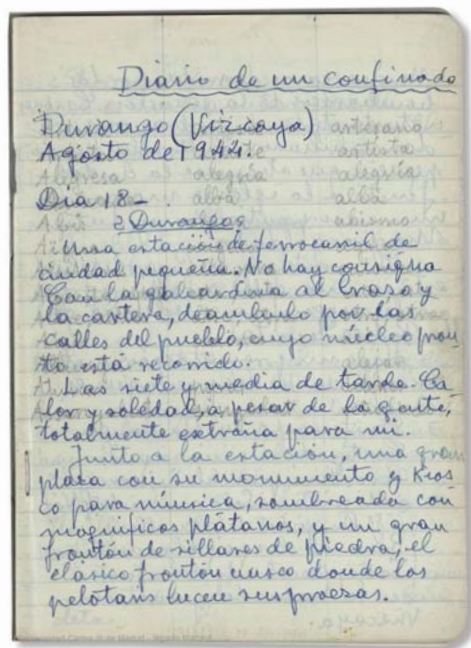 Diario de un confinado
Durango (Vizcaya)
Agosto de 1944.
Día 18-
¿Durangos
Una estación de ferrocarril de
ciudad pequeña. No hay consigna
Con la gabardina al brazo y
la cartera, deambulo por las
calles del pueblo, cuyo núcleo pron
to está recorrido.
Las siete y media de tarde. Ca
lor y soledad, a pesar de la gente,
totalmente extraña para mí.
Junto a la estación, una gran
plaza con su monumento y kios
co para música, sombreada con
magníficos plátanos, y un gran
frontón de sillares de piedra, el
clásico frontón vasco donde los
pelotaris lucen sus proezas.
artesana
artista
alegría
alegría
alba
alba
abismo